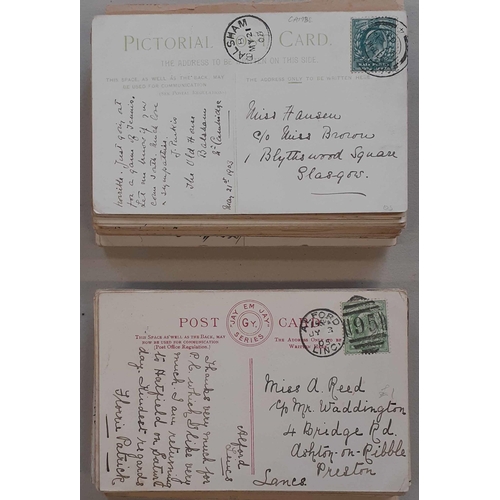 CAMBS
PICTORIAL CARD.
THE ADDRESS TO BE ON THIS SIDE.
THIS SPACE, AS WELL AS THE BACK, MAY
BE USED FOR COMMUNICATION
THE ADDRESS ONLY TO BE WRITTEN HERE
BALSHAM
MY 21
03
Horrible. Just going out
for a game of Tennis.
Let me know if you
come south. Much love
& sympathies.
The Old House
Balsham
Cambridge
May 21st 1903
Miss Hansen
c/o Miss Brown
1 Blythswood Square
Glasgow.
POST CARD
"JAY EM JAY"
GY.
SERIES
THIS SPACE AS WELL AS THE BACK, MAY
BE USED FOR COMMUNICATION
(Post Office Regulation.)
ALFORD
JY 3
LINC
95
Alford
Lincs
Thanks very much for
P.c. which I like very
much. I am returning
to Hatfield on Satur
day. Kindest regards
Florrie Patrick
Miss A Reed
c/o Mr Waddington
4 Bridge Rd.
Ashton-on-Ribble
Preston
Lancs